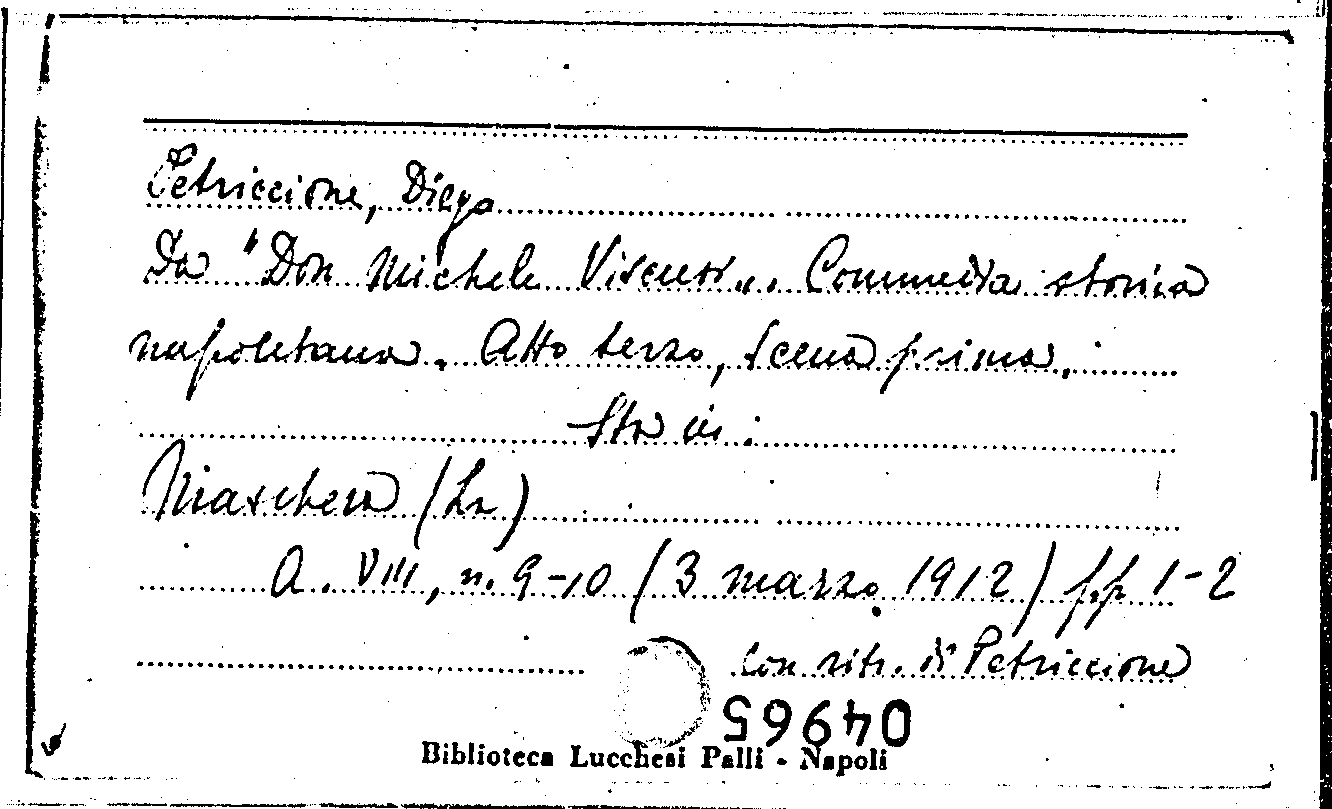 Petriccione, Diego
Da "Don Michele Viscusi". Commedia storica
napoletana. Atto terzo, scena prima.
Sta in:
Maschera (La)
A. VIII, n. 9-10 (3 marzo 1912) pp 1-2
con ritr. di Petriccione
04965
Biblioteca Lucchesi Palli - Napoli